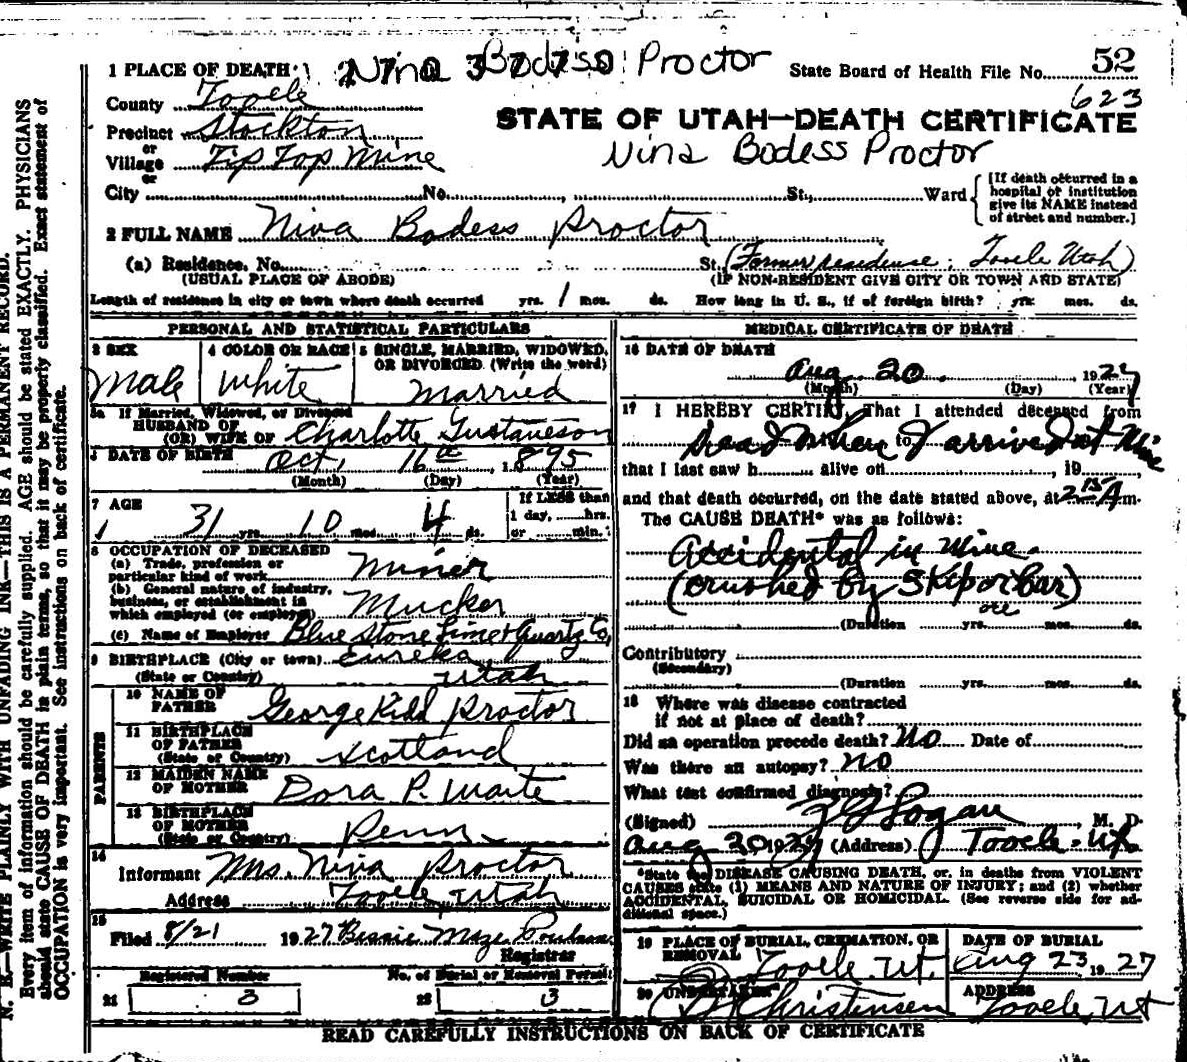 52
1 PLACE OF DEATH Nina Bodess Proctor State Board of Health File No.
623
County Tooele
STATE OF UTAH—DEATH CERTIFICATE
Precinct Stockton
or
Village Tip Top Mine
Nina Bodess Proctor
or
City No. , St., Ward
[If death occurred in a hospital or institution give its NAME instead of street and number.]
2 FULL NAME Niva Bodess Proctor
(a) Residence. No. St. (Former residence: Tooele Utah)
(USUAL PLACE OF ABODE) (IF NON-RESIDENT GIVE CITY OR TOWN AND STATE)
Length of residence in city or town where death occurred yrs. 1 mos. ds. How long in U. S., if of foreign birth? yrs. mos. ds.
PERSONAL AND STATISTICAL PARTICULARS
3 SEX
Male
4 COLOR OR RACE
White
5 SINGLE, MARRIED, WIDOWED, OR DIVORCED (Write the word)
Married
5a If Married, Widowed, or Divorced
HUSBAND OF
(OR) WIFE OF Charlotte Gustaveson
DATE OF BIRTH Oct, 16th, 1895
(Month) (Day) (Year)
7 AGE
31 yrs 10 mos 4 ds.
If LESS than
1 day, hrs.
or min.
8 OCCUPATION OF DECEASED
(a) Trade, profession or particular kind of work Miner
(b) General nature of industry, business, or establishment in which employed (or employer) Mucker
(c) Name of Employer Blue Stone Lime & Quartz Co,
9 BIRTHPLACE (City or town) Eureka
(State or Country) Utah
PARENTS
10 NAME OF FATHER George Kidd Proctor
11 BIRTHPLACE OF FATHER
(State or Country) Scotland
12 MAIDEN NAME OF MOTHER Dora P. Waite
13 BIRTHPLACE OF MOTHER
(State or Country) Penn
14
Informant Mrs. Niva Proctor
Address Tooele Utah
15
Filed 8/21 1927 Bessie
Registrar
Registered Number
21 3
No. of Burial or Removal Permit
22 3
MEDICAL CERTIFICATE OF DEATH
16 DATE OF DEATH
Aug 20, 1927
(Month) (Day) (Year)
17 I HEREBY CERTIFY, That I attended deceased from
Dead when to I arrived at Mine
that I last saw h alive on , 19
and that death occurred, on the date stated above, at 2 15 A m.
The CAUSE DEATH* was as follows:
Accidental in Mine.
(Crushed by Skip or bar)
ore
(Duration yrs. mos. ds.
Contributory
(Secondary)
(Duration yrs. mos. ds.
18 Where was disease contracted
if not at place of death?
Did an operation precede death? No Date of
Was there an autopsy? No
What test confirmed diagnosis?
(Signed) Logan M. D.
Aug 20 1927 (Address) Tooele Ut.
*State the DISEASE CAUSING DEATH, or, in deaths from VIOLENT
CAUSES state (1) MEANS AND NATURE OF INJURY; and (2) whether
ACCIDENTAL, SUICIDAL OR HOMICIDAL. (See reverse side for additional space.)
19 PLACE OF BURIAL, CREMATION, OR REMOVAL
Tooele Ut.
DATE OF BURIAL
Aug 23 1927
20 UNDERTAKER
Christensen
ADDRESS
Tooele, Ut
READ CAREFULLY INSTRUCTIONS ON BACK OF CERTIFICATE
N. B.—WRITE PLAINLY WITH UNFADING INK—THIS IS A PERMANENT RECORD.
Every item of information should be carefully supplied. AGE should be stated EXACTLY. PHYSICIANS
should state CAUSE OF DEATH in plain terms, so that it may be properly classified. Exact statement of
OCCUPATION is very important. See instructions on back of certificate.